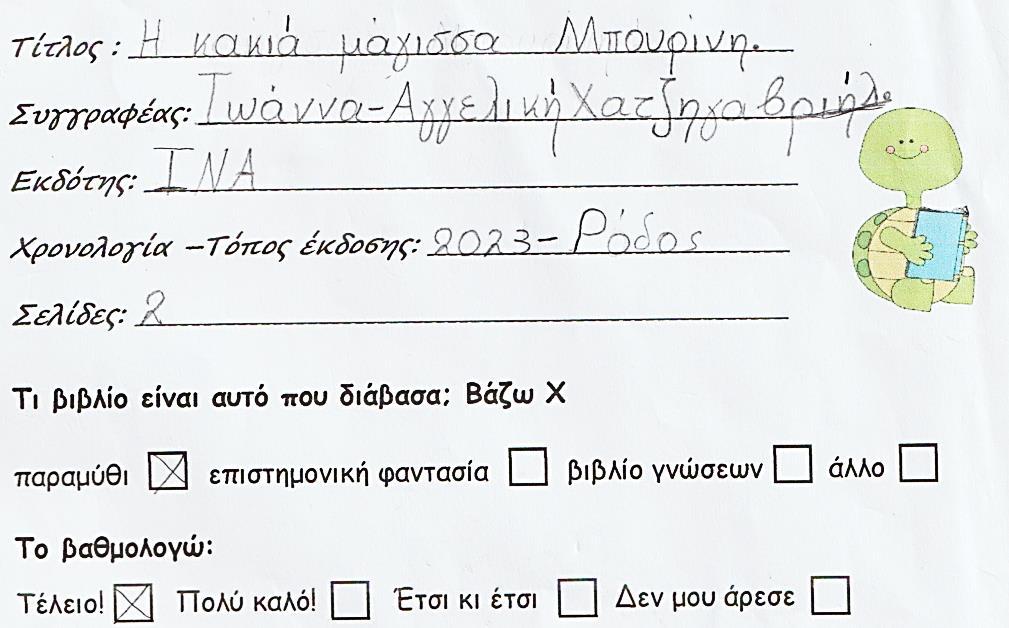 Τίτλος: Η κακιά μάγισσα Μπουρίνη.
Συγγραφέας: Ιωάννα-Αγγελική Χατζηγαβριήλ.
Εκδότης: ΙΝΑ
Χρονολογία –Τόπος έκδοσης: 2023- Ρόδος
Σελίδες: 2
Τι βιβλίο είναι αυτό που διάβασα; Βάζω Χ
παραμύθι ☒ επιστημονική φαντασία ☐ βιβλίο γνώσεων ☐ άλλο ☐
Το βαθμολογώ:
Τέλειο! ☒ Πολύ καλό! ☐ Έτσι κι έτσι ☐ Δεν μου άρεσε ☐